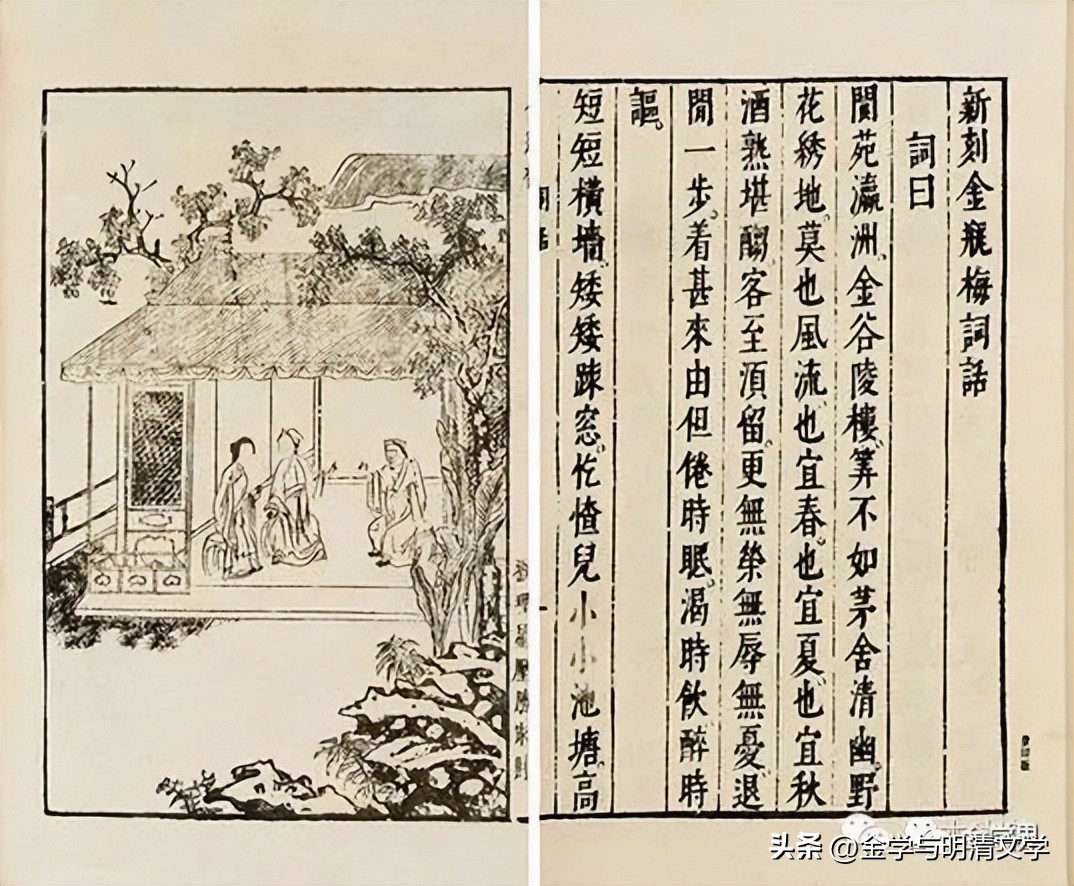 新刻金瓶梅詞話
詞曰
閬苑瀛洲。金谷陵樓。筭不如茅舍清幽。野
花綉地。莫也風流。也宜春。也宜夏。也宜秋
酒熟堪客至湏留。更無榮無辱無憂。退
閒一步。着甚來由但倦時眠。渴時飲。醉時
謳。
短短橫墻。矮矮踈窓。忔兒小小池塘。高
头条 @金学与明清文学